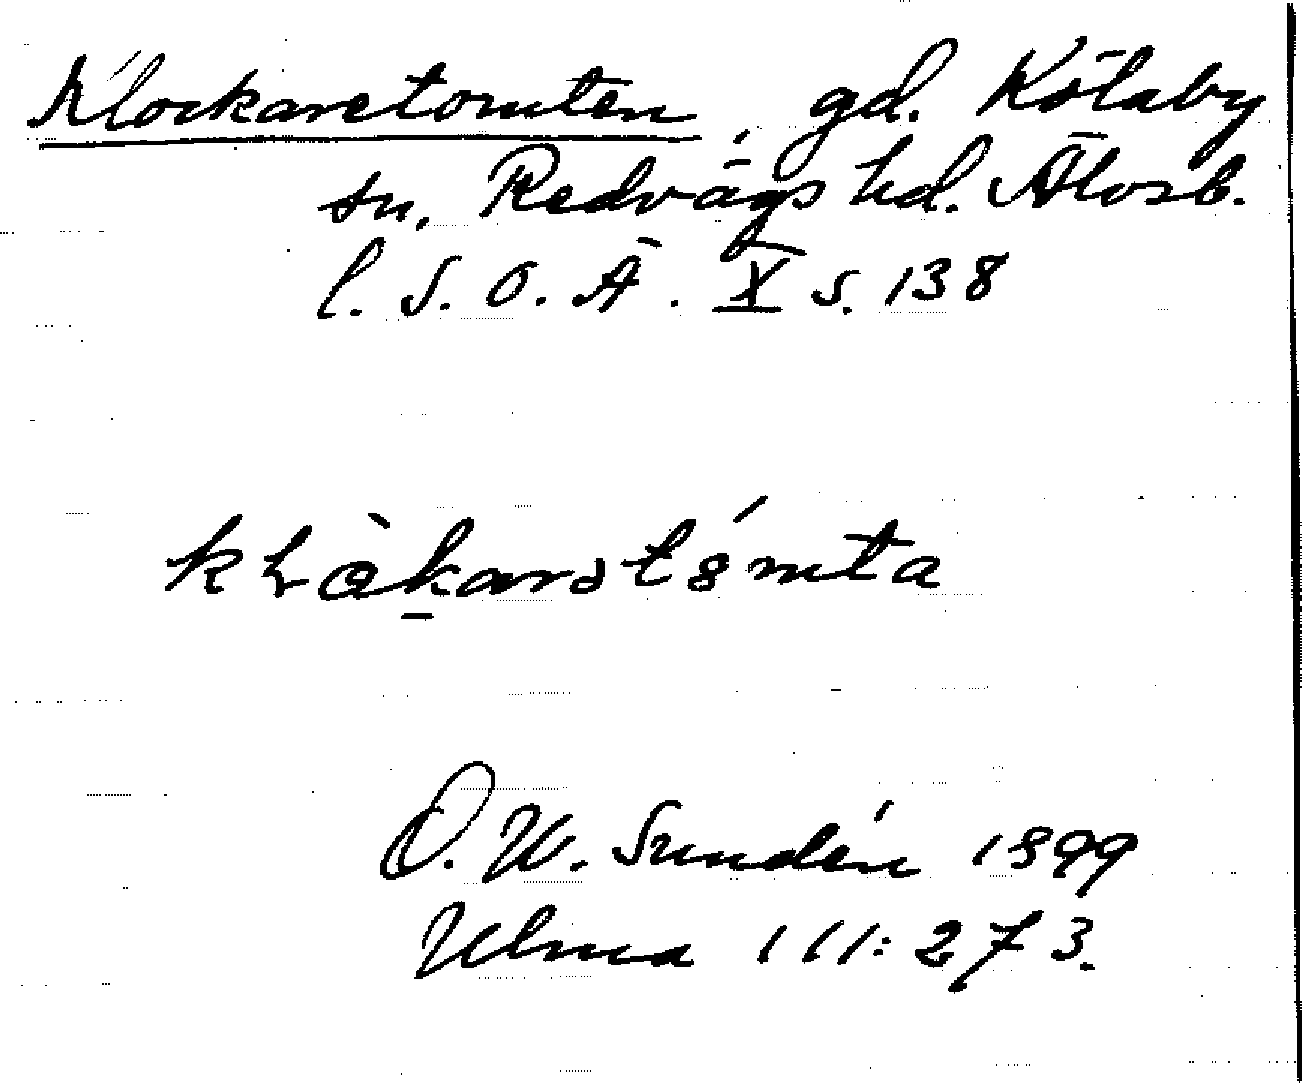 Klockaretomten, gd. Kölaby
sn, Redvägs hd. Älvsb.
l. S. O. Ä. X s. 138
O. W. Sundén 1899
Ulma 111:273.